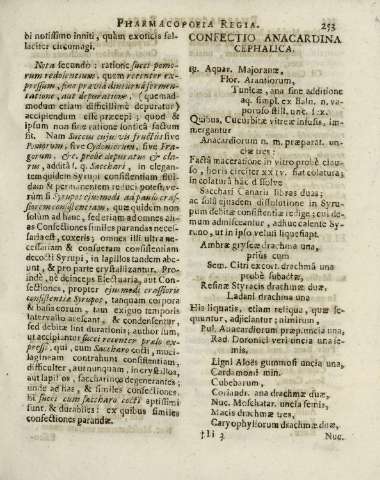 PHARMACOPOEIA REGIA. 253
bi notissimo inniti, quàm exoticis fal-
laciter circumagi.
Nota secundò: ratione succi pomo-
rum redolentium, quem recenter ex-
pressum, sine prævia diuturna fermen-
tatione, aut depuratione, (quem ad-
modum etiam difficillimè depuratur)
accipiendum esse præcepi; quod &
ipsum non sine ratione fontica factum
sit. Nam succus cujusvis fructûs sive
Pomorum, sive Cydoniorum, sive Fra-
gorum, &c. probè depuratus & cla-
rus, addita s. q. Sacchari, in elegan-
tem quidem Syrupi consistentiam flui-
dam & permanentem reduci potest, ve-
rùm si Syrupus ejusmodi ad paulò cras-
siorem consistentiam, quæ quidem non
solùm ad hanc, sed etiam ad omnes ali-
as Confectiones similes parandas neces-
saria est, coxeris; omnes illi ultra ne-
cessariam & consuetam consistentiam
decocti Syrupi, in lapillos tandem abe-
unt, & pro parte crystallizantur. Pro-
inde, ne deinceps Electuaria, aut Con-
fectiones, propter ejusmodi crassioris
consistentiæ Syrupos, tanquam corpora
& basis eorum, tam exiguo temporis
intervallo arescant, & condensentur,
sed debitæ sint durationis; author sum,
ut accipiantur succi recenter prælo ex-
pressi, qui, cum Saccharo cocti, muci-
lagineam contrahunt consistentiam,
difficulter, aut nunquam, in crystallos,
aut lapillos, saccharinos degenerantes;
unde ad has, & similes confectiones,
hi succi cum saccharo cocti aptissimi
sunt, & durabiles: ex quibus similes
confectiones parandæ.
CONFECTIO ANACARDINA
CEPHALICA.
℞. Aquar. Majoranæ,
Flor. Arantiorum,
Tunicæ, ana sine additione
aq. simpl. ex Baln. n. va-
poroso still. unc. Ix.
Quibus, Cucurbitæ vitreæ infusis, im-
mergantur
Anacardiorum n. m. præparat. un-
ciæ tres;
Facta maceratione in vitro probè clau-
so, horis circiter XXIV. fiat colatura;
in colatura hac dissolve
Sacchari Canarii libras duas;
ac soli ejusdem dissolutione in Syru-
pum debitæ consistentiæ redige; cui de-
mum admisceantur, adhuc calente Sy-
rupo, ut in ipso veluti liquefiant,
Ambræ gryseæ drachma una,
prius cum
Sem. Citri excort. drachmâ una
probè subactæ,
Resinæ Styracis drachmæ duæ,
Ladani drachma una
His liquatis, etiam reliqua, quæ se-
quuntur, adjiciantur; nimirum,
Pul. Anacardiorum præp. uncia una,
Rad. Doronici veri uncia una se-
mis,
Ligni Aloës gummosi uncia una,
Cardamomi min.
Cubebarum,
Coriandr. ana drachmæ duæ,
Nuc. Moschatar. uncia semis,
Macis drachmæ tres,
Caryophyllorum drachmæ duæ,
†Ii 3 Nuc.